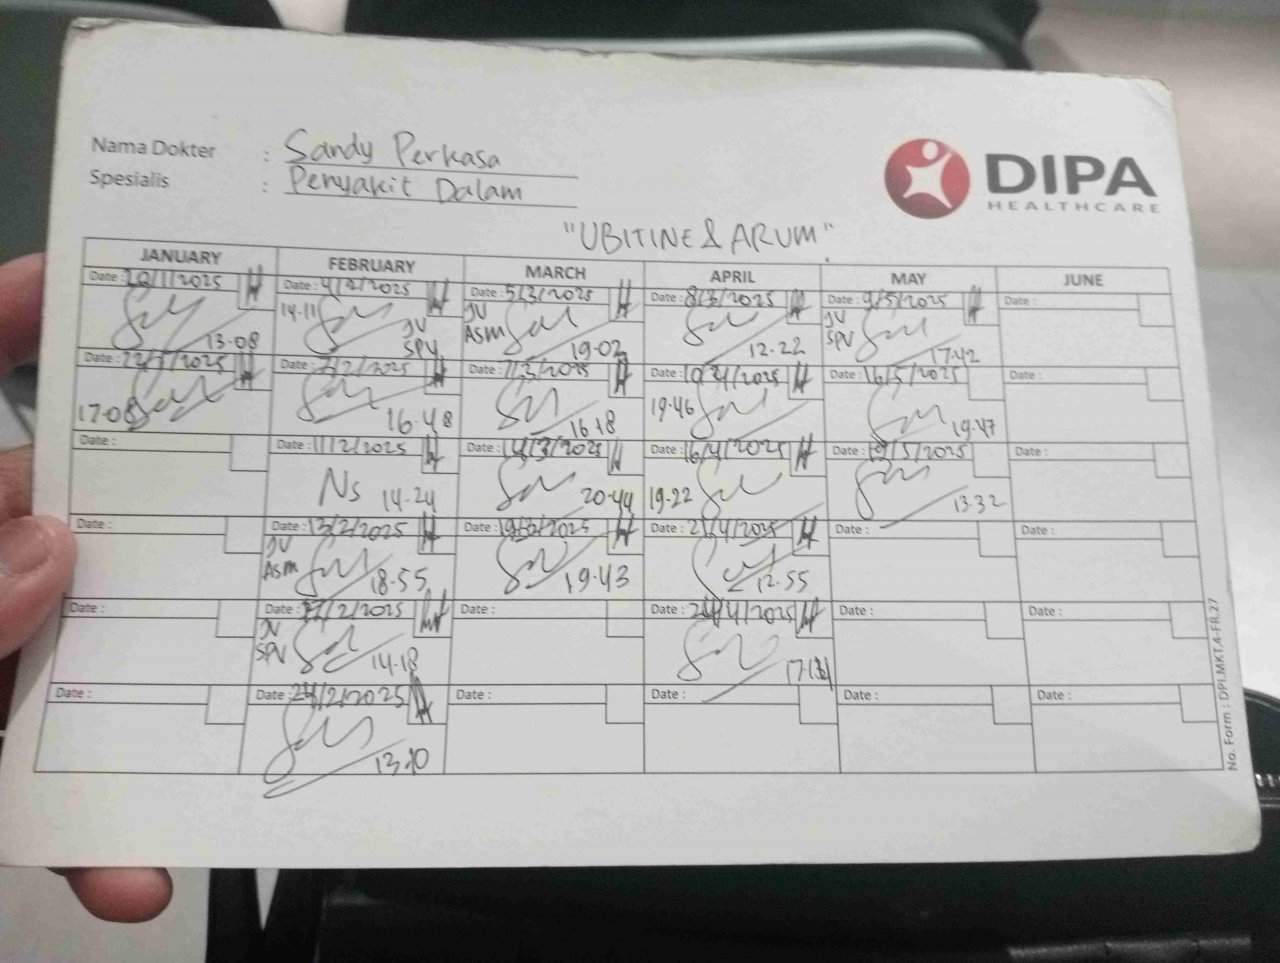 Nama Dokter : Sandy Perkasa
Spesialis : Penyakit Dalam
DIPA
HEALTHCARE
"UBITINE & ARUM"
JANUARY FEBRUARY MARCH APRIL MAY JUNE
Date : 20/1/2025 Date : 4/2/2025 Date : 5/3/2025 Date : 8/3/2025 Date : 9/5/2025 Date :
13-08 14-11 JV SPV JV Asm 19-02 12-22 JV SPV 17-42
Date : /2025 Date : /2/2025 Date : 7/3/2025 Date : /2025 Date : 16/5/2025 Date :
17-08 16-48 16-18 19-46 19-47
Date : Date : 11/2/2025 Date : 14/3/2025 Date : 16/4/2025 Date : /5/2025 Date :
Ns 14-24 20-44 19-22 13-32
Date : Date : 13/2/2025 Date : /2025 Date : /4/2025 Date : Date :
JV Asm 18-55 19-43 12-55
Date : Date : /2/2025 Date : Date : /4/2025 Date : Date :
JV SPV 14-18
Date : Date : /2/2025 Date : Date : Date : Date :
No. Form : DPLMKT.4-FR.27